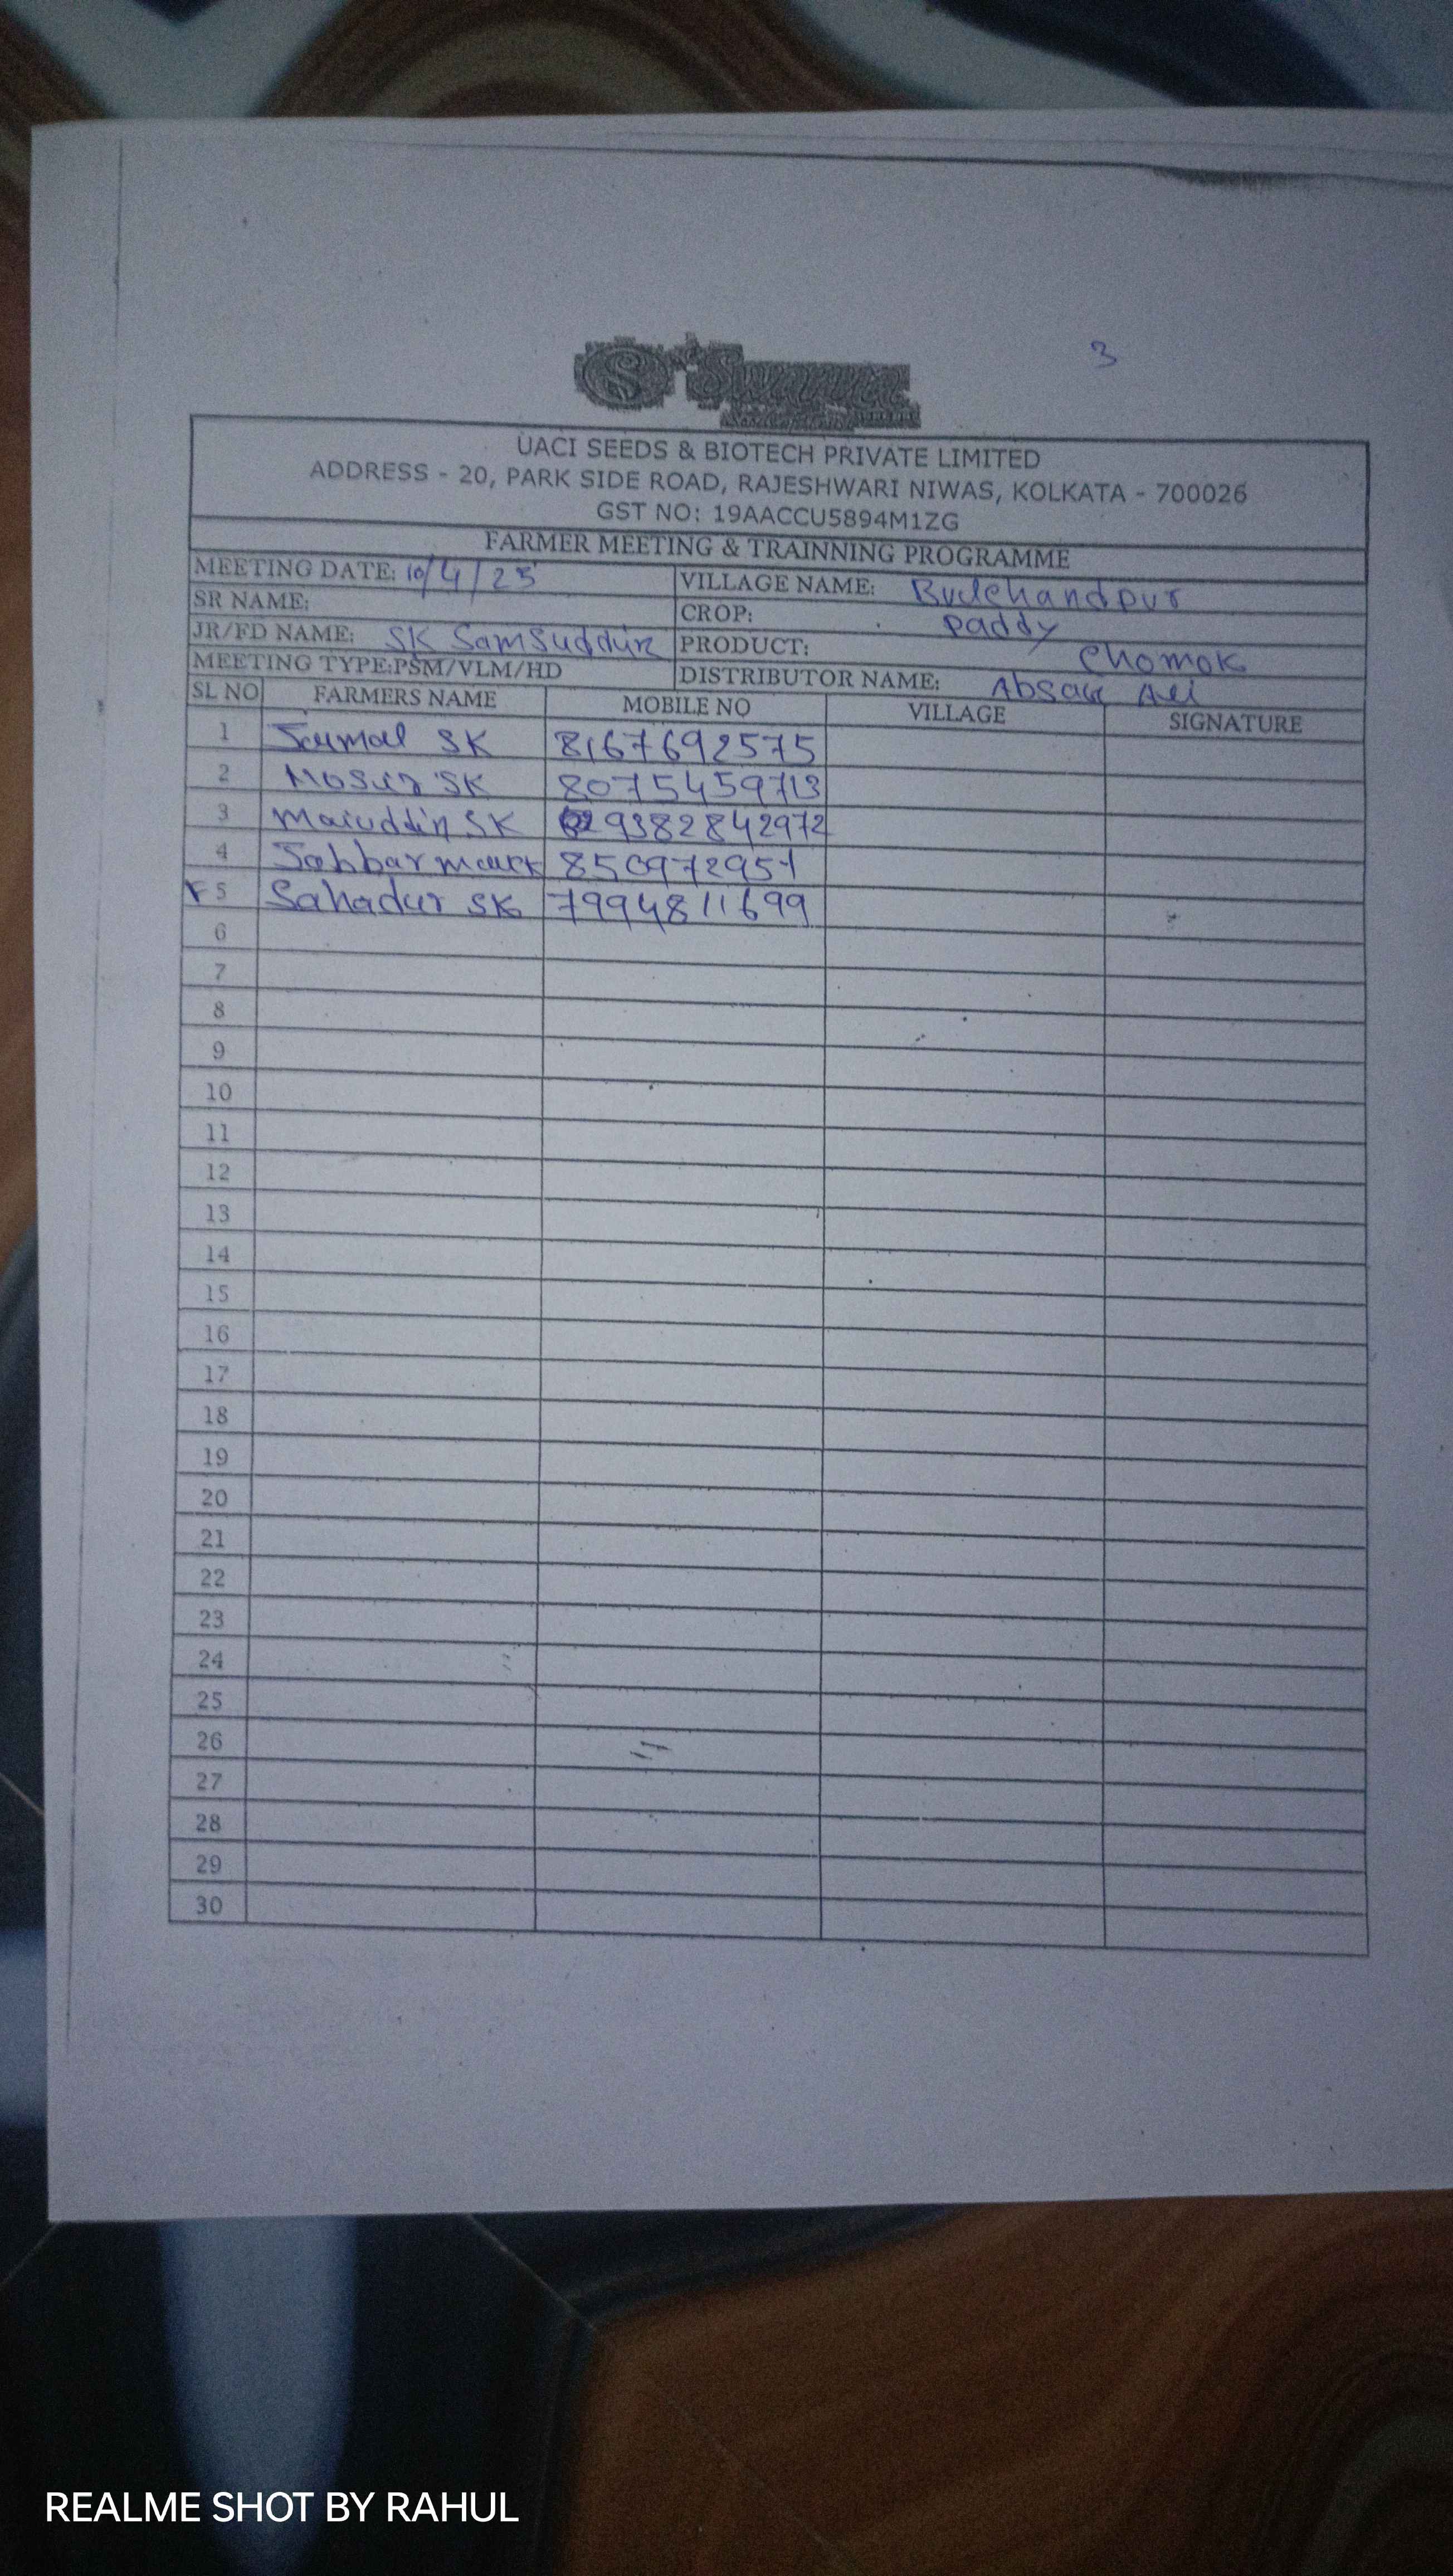 3
Swarna
UACI SEEDS & BIOTECH PRIVATE LIMITED
ADDRESS - 20, PARK SIDE ROAD, RAJESHWARI NIWAS, KOLKATA - 700026
GST NO: 19AACCU5894M1ZG
FARMER MEETING & TRAINNING PROGRAMME
MEETING DATE: 10/4/25 VILLAGE NAME: Budchandpur
SR NAME: CROP: Paddy
JR/FD NAME: SK Samsuddin PRODUCT: Chomok
MEETING TYPE:PSM/VLM/HD DISTRIBUTOR NAME: Ali
SL NO FARMERS NAME MOBILE NO VILLAGE SIGNATURE
1 SK 8167692575
2 SK 8075459713
3 Maiuddin SK 9382842972
4 Jabbar 850972951
5 Sahadur SK 7994811699
6
7
8
9
10
11
12
13
14
15
16
17
18
19
20
21
22
23
24
25
26
27
28
29
30
REALME SHOT BY RAHUL